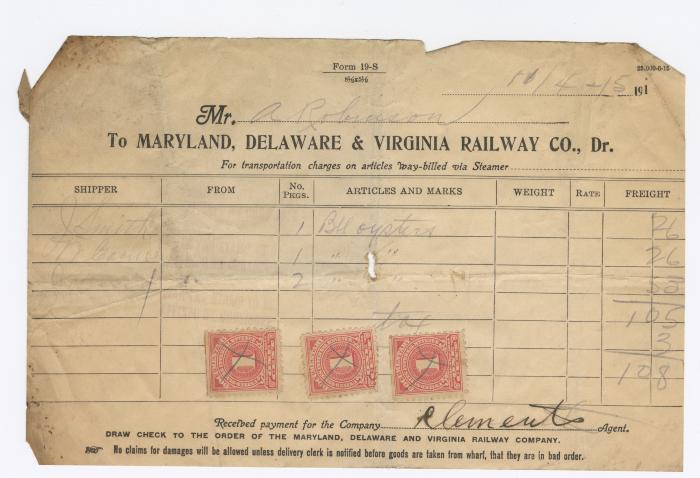 Form 19-S
8½x5½
25,000-6-15
10/4-15 191
Mr. A Robinson
To MARYLAND, DELAWARE & VIRGINIA RAILWAY CO., Dr.
For transportation charges on articles way-billed via Steamer
SHIPPER FROM No. PKGS. ARTICLES AND MARKS WEIGHT RATE FREIGHT
J Smith 1 Bbl oysters 26
1 " " 26
2 " " 53
105
tax 3
108
Received payment for the Company Clements Agent.
DRAW CHECK TO THE ORDER OF THE MARYLAND, DELAWARE AND VIRGINIA RAILWAY COMPANY.
No claims for damages will be allowed unless delivery clerk is notified before goods are taken from wharf, that they are in bad order.